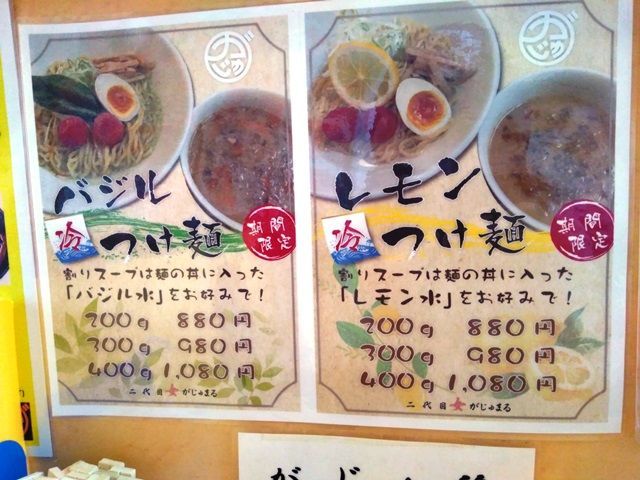 バジル
冷 つけ麺
期間
限定
割りスープは麺の丼に入った
「バジル水」をお好みで!
200g 880円
300g 980円
400g 1,080円
二代目 がじゅまる
レモン
冷 つけ麺
期間
限定
割りスープは麺の丼に入った
「レモン水」をお好みで!
200g 880円
300g 980円
400g 1,080円
二代目 がじゅまる